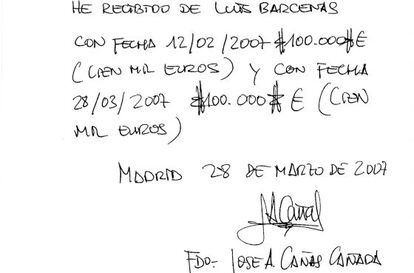 HE RECIBIDO DE LUIS BARCENAS
CON FECHA 12/02/2007 #100.000#€
(CIEN MIL EUROS) Y CON FECHA
28/03/2007 #100.000# € (CIEN
MIL EUROS)
MADRID 28 DE MARZO DE 2007
JACañal
FDO- JOSE A. CAÑAS CAÑADA